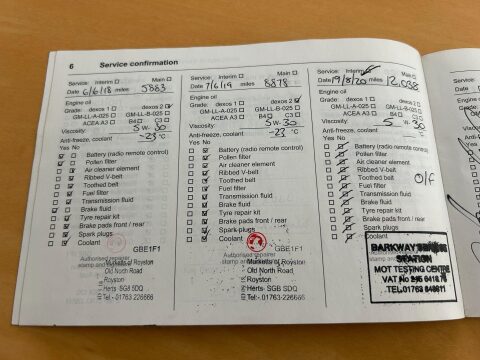 6 Service confirmation
Service: Interim Main
Date 6/6/18 miles 5883
Engine oil
Grade: dexos 1 dexos 2
GM-LL-A-025 GM-LL-B-025
ACEA A3 B4 C3
Viscosity: 5 W- 30
Anti-freeze, coolant -23 °C
Yes No
Battery (radio remote control)
Pollen filter
Air cleaner element
Ribbed V-belt
Toothed belt
Fuel filter
Transmission fluid
Brake fluid
Tyre repair kit
Brake pads front / rear
Spark plugs
Coolant
GBE1F1
Authorised repairer
stamp and
Marketts of Royston
Old North Road
Royston
Herts SG8 5DQ
Tel:-01763-226666
Service: Interim Main
Date 7/6/19 miles 8878
Engine oil
Grade: dexos 1 dexos 2
GM-LL-A-025 GM-LL-B-025
ACEA A3 B4 C3
Viscosity: 5 W- 30
Anti-freeze, coolant -23 °C
Yes No
Battery (radio remote control)
Pollen filter
Air cleaner element
Ribbed V-belt
Toothed belt
Fuel filter
Transmission fluid
Brake fluid
Tyre repair kit
Brake pads front / rear
Spark plugs
Coolant
GBE1F1
Authorised repairer
stamp and
Marketts of Royston
Old North Road
Royston
Herts SG8 5DQ
Tel:-01763-226666
Service: Interim Main
Date 19/8/20 miles 12,038
Engine oil
Grade: dexos 1 dexos 2
GM-LL-A-025 GM-LL-B-025
ACEA A3 B4 C3
Viscosity: 5 W- 30
Anti-freeze, coolant °C
Yes No
Battery (radio remote control)
Pollen filter
Air cleaner element
Ribbed V-belt
Toothed belt
O/F
Fuel filter
Transmission fluid
Brake fluid
Tyre repair kit
Brake pads front / rear
Spark plugs
Coolant
BARKWAY SERVICE
STATION
MOT TESTING CENTRE
VAT No
TEL.01763